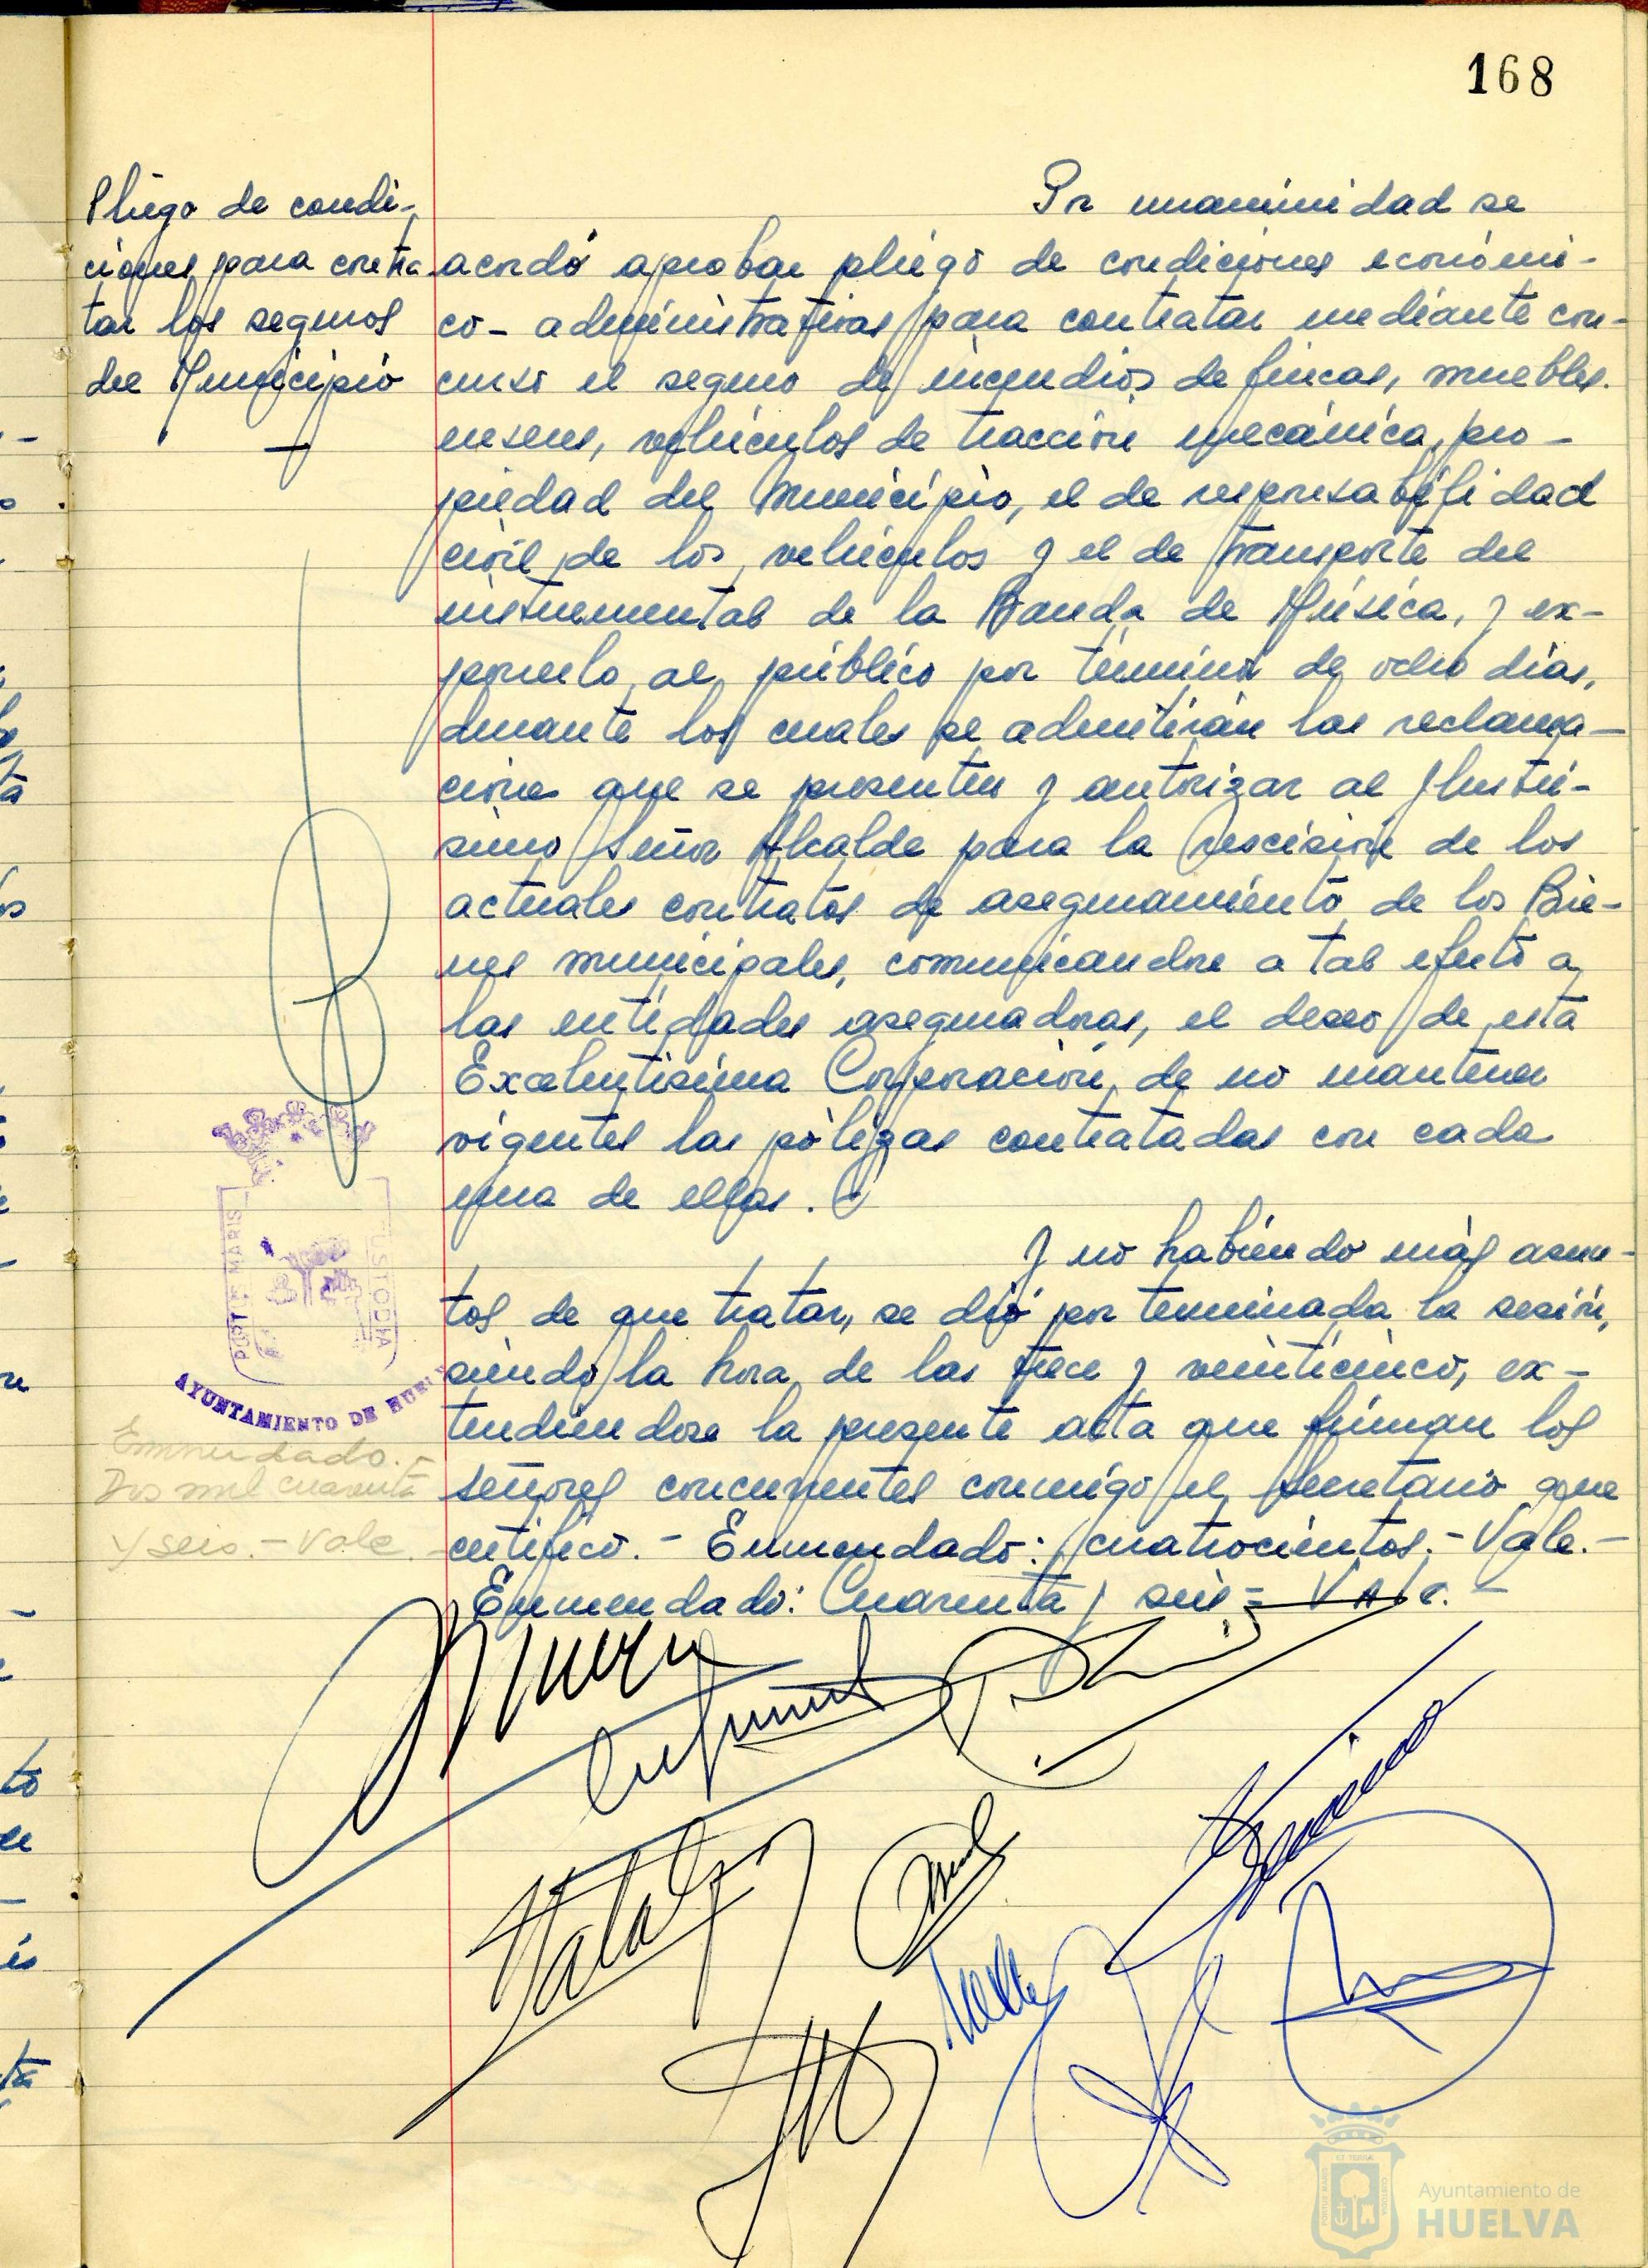 168
Pliego de condi-
ciones para contra
tar los seguros
del Municipio
Por unanimidad se
acordó aprobar pliego de condiciones económi-
co-administrativas para contratar mediante con-
curso el seguro de incendios de fincas, muebles,
enseres, vehículos de tracción mecánica, pro-
piedad del Municipio, el de responsabilidad
civil de los vehículos y el de transporte del
instrumental de la Banda de Música, y ex-
ponerlo al público por término de ocho días,
durante los cuales se admitirán las reclama-
ciones que se presenten y autorizar al Ilustrí-
simo Señor Alcalde para la rescisión de los
actuales contratos de aseguramiento de los Bie-
nes municipales, comunicandose a tal efecto a
las entidades aseguradoras, el deseo de esta
Excelentísima Corporación, de no mantener
vigentes las pólizas contratadas con cada
una de ellas.
Y no habiendo más asun-
tos de que tratar, se dió por terminada la sesión,
siendo la hora de las trece y veinticinco, ex-
tendiendose la presente acta que firman los
señores concurrentes conmigo el Secretario que
certifico.- Enmendado: cuatrocientos.- Vale.-
Enmendado: Cuarenta y seis = Vale.-
PORTUS MARIS
CUSTODIA
AYUNTAMIENTO DE HUELVA
Enmendado.-
Dos mil cuarenta
y seis.- Vale.
Ayuntamiento de
HUELVA